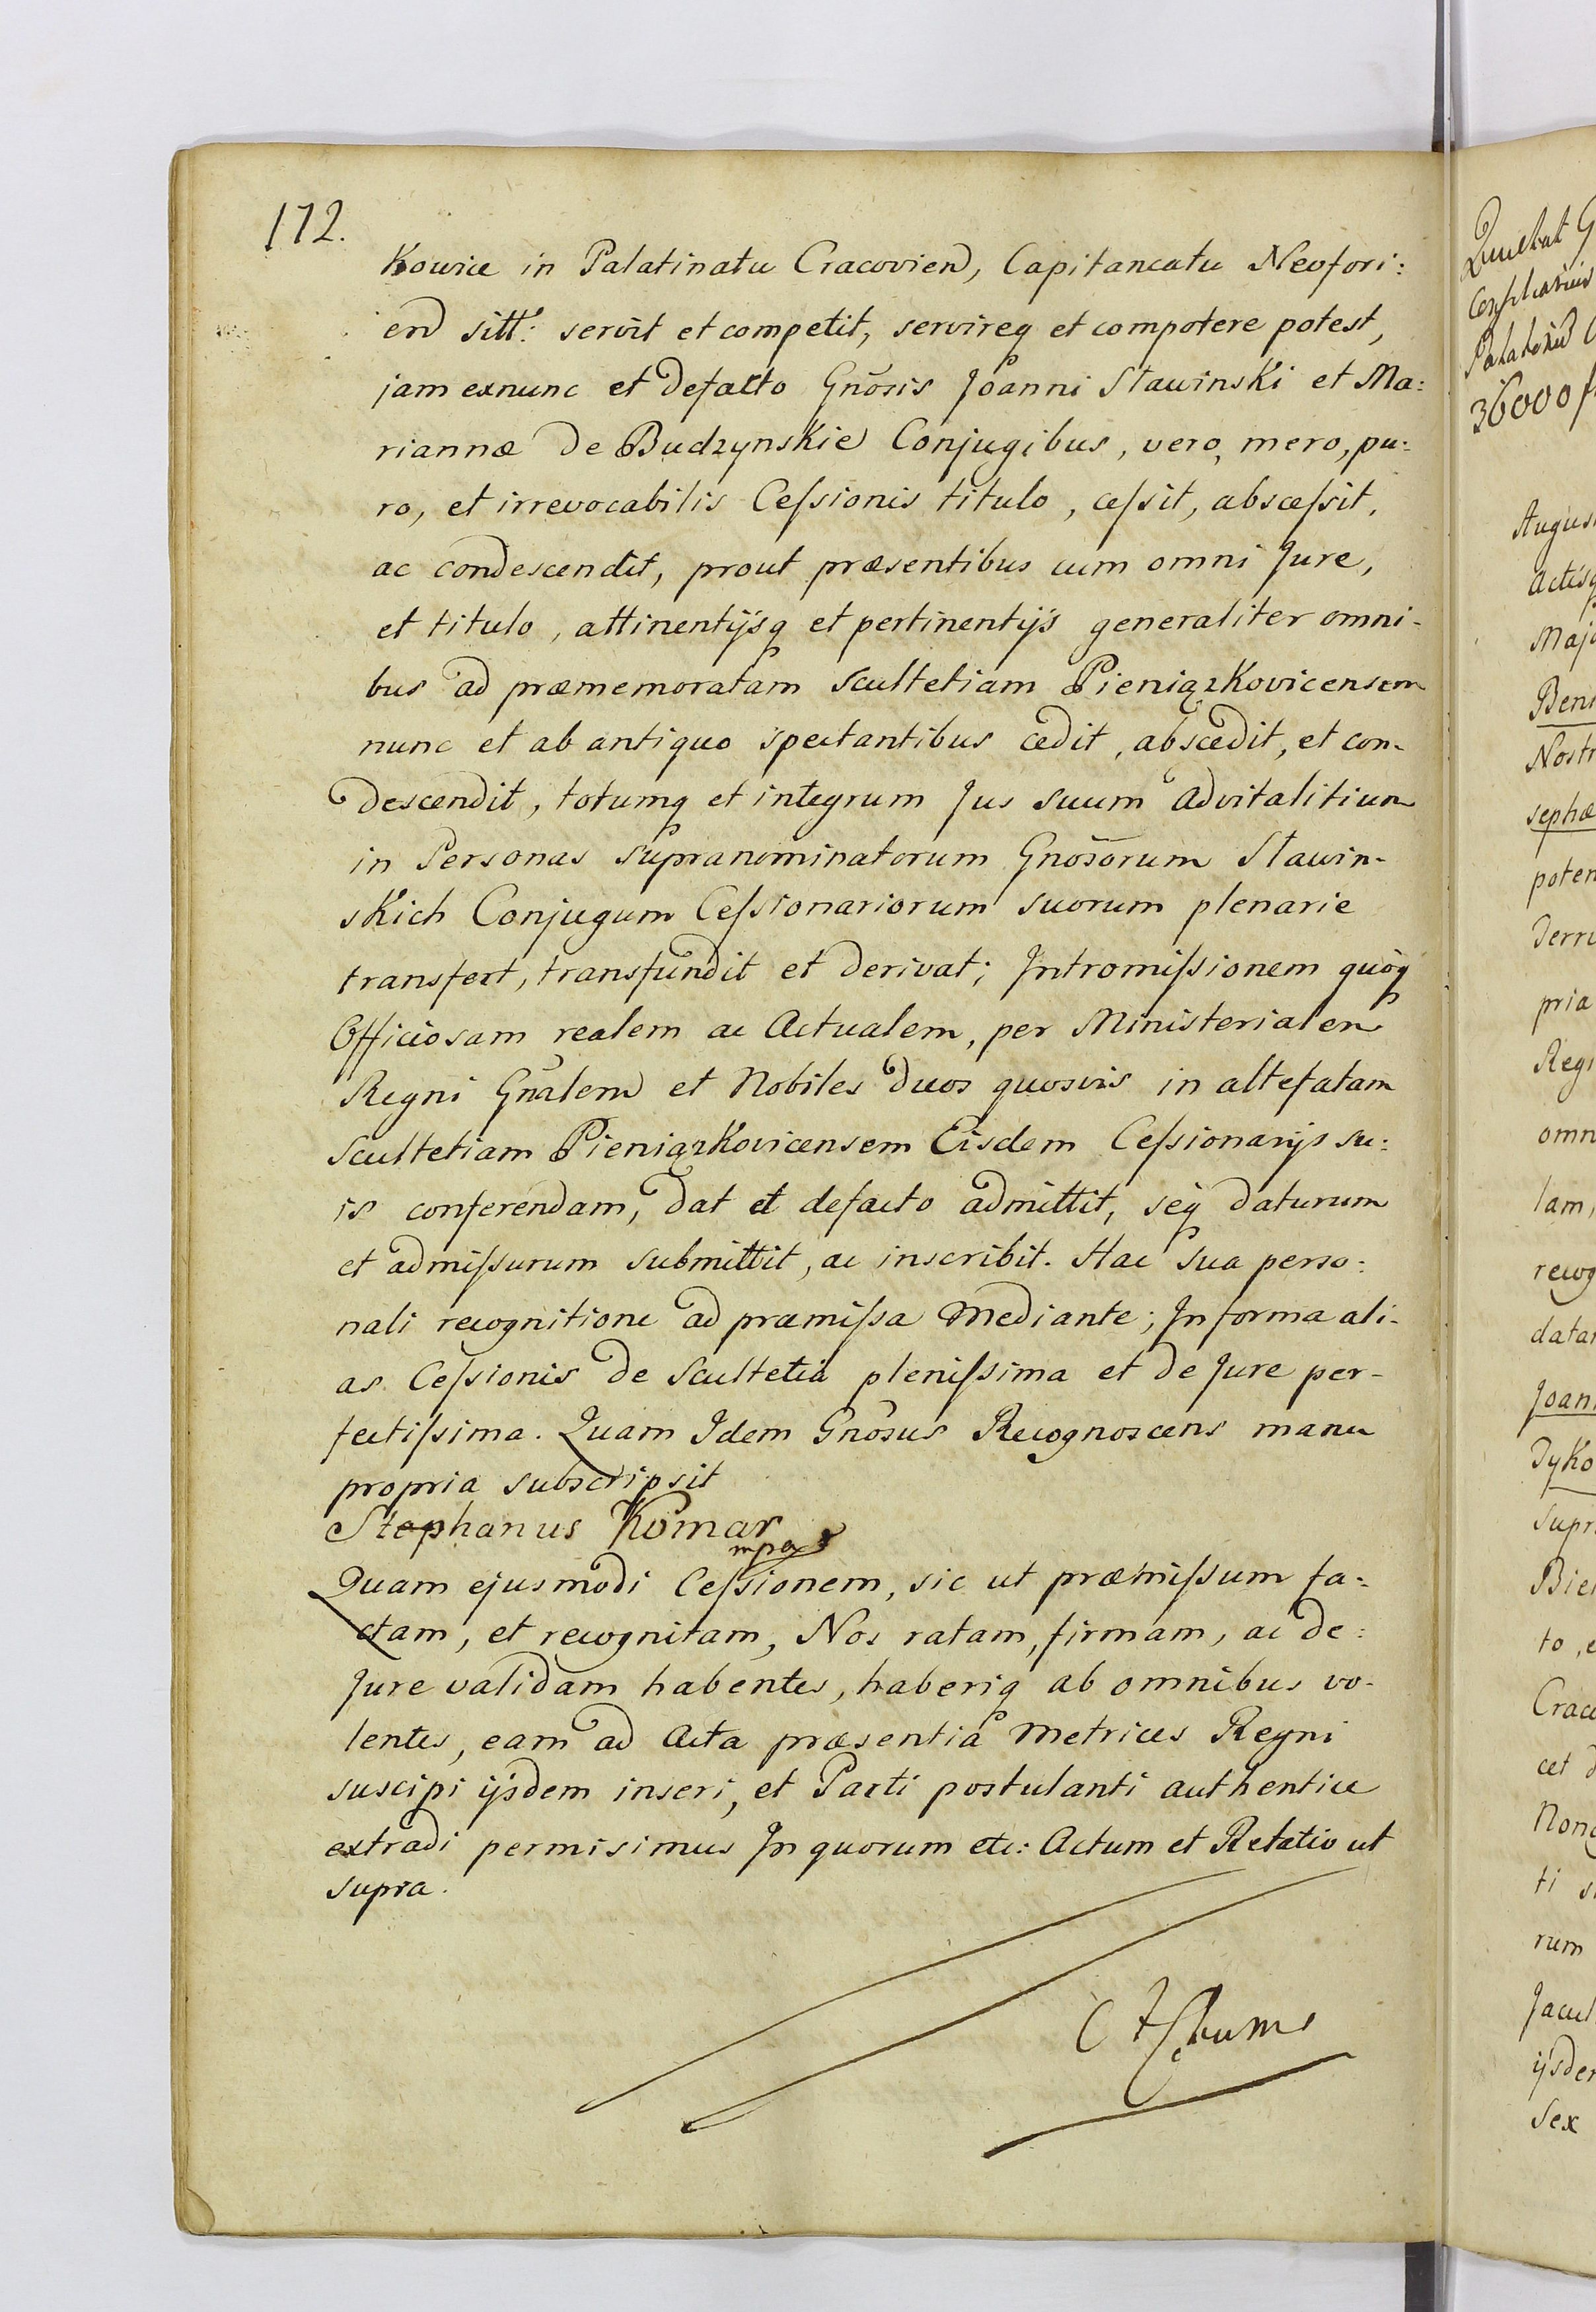 172.
Kowice in Palatinatu Cracovien, Capitaneatu Neofori:
en sitt: servit et competit, servireq et compotere potest,
jam exnunc et defacto Gnosis Joanni Stawinski et Ma:
riannæ de Budzynskie Conjugibus, vero, mero, pu:
ro, et irrevocabilis Cessionis titulo, cessit, abscessit,
ac condescendit, prout præsentibus cum omni Jure,
et titulo, attinentijsq et pertinentijs generaliter omni-
bus ad præmemoratam Scultetiam Pieniązkovicensem
nunc et ab antiquo spectantibus cedit, abscedit, et con-
descendit, totumq et integrum Jus suum Advitalitium
in Personas supranominatorum Gnosorum Stawin-
skich Conjugum Cessionariorum suorum plenarie
transfert, transfundit et derivat; Intromissionem quoq
Officiosam realem ac Actualem, per Ministerialem
Regni Gnalem et Nobiles duos quosvis in altefatam
Scultetiam Pieniązkovicensem Eisdem Cessionarijs su:
is conferendam, dat et defacto admittit, seq daturum
et admissurum submittit, ac inscribit. Hac sua perso:
nali recognitione ad præmissa mediante; In forma ali-
as Cessionis de Scultetia plenissima et de Jure per-
fectissima. Quam Idem Gnosus Recognoscens manu
propria subscripsit
Stephanus Komar
mpa
Quam ejusmodi Cessionem, sic ut præmissum fa:
ctam, et recognitam, Nos ratam, firmam, ac de:
Jure validam habentes, haberiq ab omnibus vo-
lentes, eam ad Acta præsentia Metrices Regni
suscipi ijsdem inseri, et Parti postulanti authentice
extradi permisimus In quorum etc: Actum et Relatio ut
supra.
36000
Augus
actisq
Maj
Ben
Nostr
sephæ
poten
pria
Regi
omn
lam,
recog
data
Joan
Tyko
supr
Bie
to, e
Crac
cet d
Nong
ti s
rum
Jacul
ijsde
sex